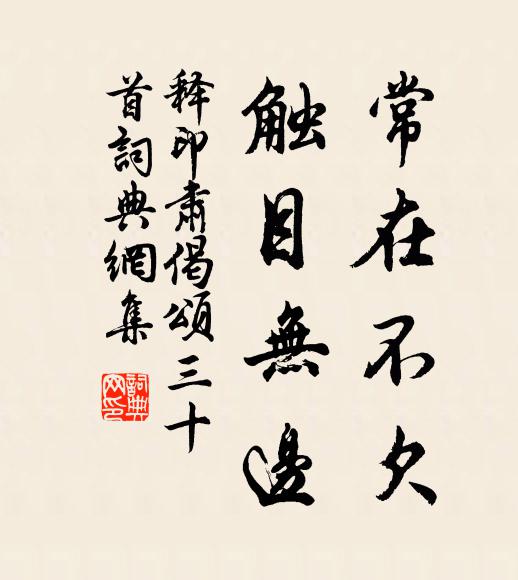 常在不欠
触目無邊
释印肅偈頌三十
首詞典網集
詞典
网印